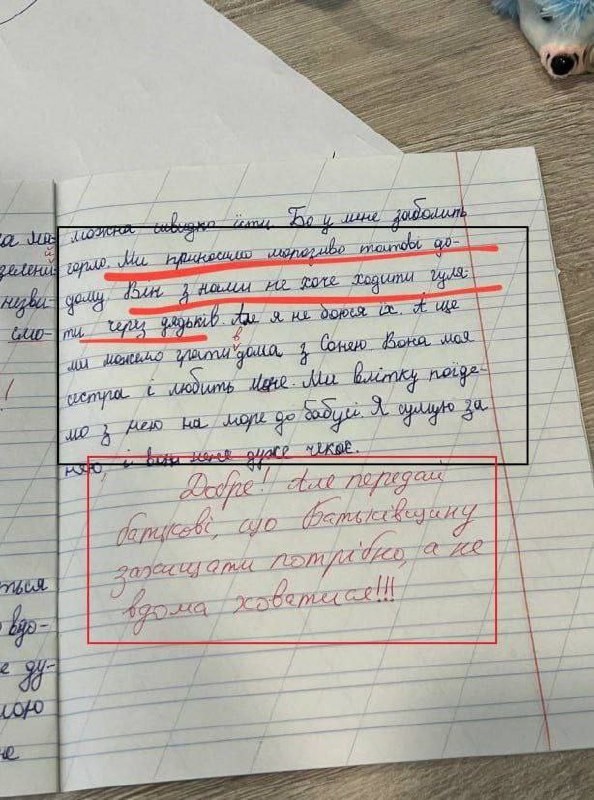 ка ма-
й
зелени
незви-
смо-
!
ться
вдо-
е ду-
мою
не
можна швидко їсти. Бо у мене заболить
горло. Ми приносимо морозиво татові до-
дому. Він з нами не хоче ходити гуля-
ти через дядьків. Але я не боюся їх. А ще
в
ми можемо грати дома з Сонею Вона моя
сестра і любить мене. Ми влітку поїде-
мо з нею на море до бабусі Я сумую за
нею, і вона мене дуже чекає.
Добре! Але передай
батькові, що Батьківщину
захищати потрібно, а не
вдома ховатися!!!